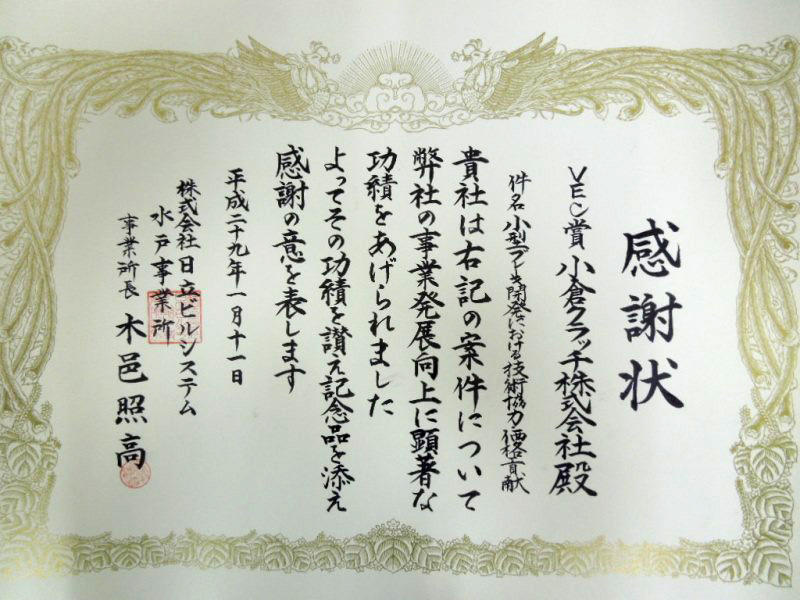 感謝状
VEC賞 小倉クラッチ株式会社殿
件名 小型ブレーキ開発における技術協力 価格貢献
貴社は右記の案件について
弊社の事業発展向上に顕著な
功績をあげられました
よってその功績を讃え記念品を添え
感謝の意を表します
平成二十九年一月十一日
株式会社日立ビルシステム
水戸事業所
事業所長 木邑照高